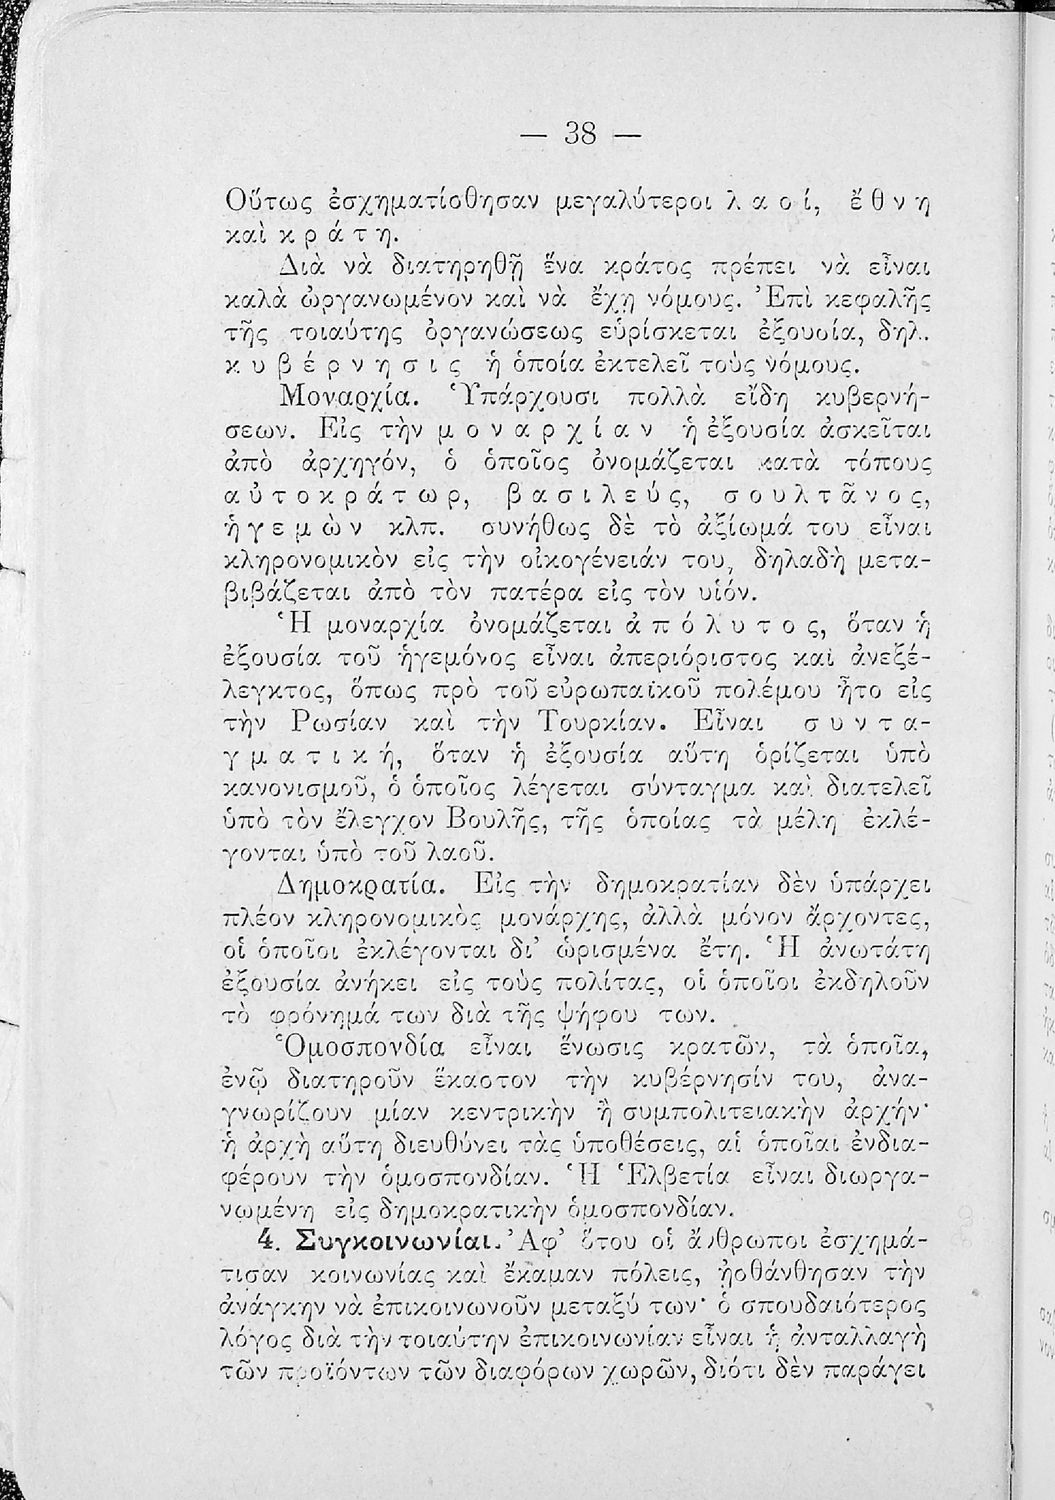 — 38 —
Οὕτως ἐσχηματίσθησαν μεγαλύτεροι λαοί, ἔθνη
καὶ κράτη.
Διὰ νὰ διατηρηθῇ ἕνα κράτος πρέπει νὰ εἶναι
καλὰ ὠργανωμένον καὶ νὰ ἔχῃ νόμους. Ἐπὶ κεφαλῆς
τῆς τοιαύτης ὀργανώσεως εὑρίσκεται ἐξουσία, δηλ.
κυβέρνησις ἡ ὁποία ἐκτελεῖ τοὺς νόμους.
Μοναρχία. Ὑπάρχουσι πολλὰ εἴδη κυβερνή-
σεων. Εἰς τὴν μοναρχίαν ἡ ἐξουσία ἀσκεῖται
ἀπὸ ἀρχηγόν, ὁ ὁποῖος ὀνομάζεται κατὰ τόπους
αὐτοκράτωρ, βασιλεύς, σουλτᾶνος,
ἡγεμὼν κλπ. συνήθως δὲ τὸ ἀξίωμά του εἶναι
κληρονομικὸν εἰς τὴν οἰκογένειάν του, δηλαδὴ μετα-
βιβάζεται ἀπὸ τὸν πατέρα εἰς τὸν υἱόν.
Ἡ μοναρχία ὀνομάζεται ἀπόλυτος, ὅταν ἡ
ἐξουσία τοῦ ἡγεμόνος εἶναι ἀπεριόριστος καὶ ἀνεξέ-
λεγκτος, ὅπως πρὸ τοῦ εὐρωπαϊκοῦ πολέμου ἦτο εἰς
τὴν Ρωσίαν καὶ τὴν Τουρκίαν. Εἶναι συντα-
γματική, ὅταν ἡ ἐξουσία αὕτη ὁρίζεται ὑπὸ
κανονισμοῦ, ὁ ὁποῖος λέγεται σύνταγμα καὶ διατελεῖ
ὑπὸ τὸν ἔλεγχον Βουλῆς, τῆς ὁποίας τὰ μέλη ἐκλέ-
γονται ὑπὸ τοῦ λαοῦ.
Δημοκρατία. Εἰς τὴν δημοκρατίαν δὲν ὑπάρχει
πλέον κληρονομικὸς μονάρχης, ἀλλὰ μόνον ἄρχοντες,
οἱ ὁποῖοι ἐκλέγονται δι’ ὡρισμένα ἔτη. Ἡ ἀνωτάτη
ἐξουσία ἀνήκει εἰς τοὺς πολίτας, οἱ ὁποῖοι ἐκδηλοῦν
τὸ φρόνημά των διὰ τῆς ψήφου των.
Ὁμοσπονδία εἶναι ἕνωσις κρατῶν, τὰ ὁποῖα,
ἐνῷ διατηροῦν ἕκαστον τὴν κυβέρνησίν του, ἀνα-
γνωρίζουν μίαν κεντρικὴν ἢ συμπολιτειακὴν ἀρχήν·
ἡ ἀρχὴ αὕτη διευθύνει τὰς ὑποθέσεις, αἱ ὁποῖαι ἐνδια-
φέρουν τὴν ὁμοσπονδίαν. Ἡ Ἑλβετία εἶναι διωργα-
νωμένη εἰς δημοκρατικὴν ὁμοσπονδίαν.
4. Συγκοινωνίαι. Ἀφ’ ὅτου οἱ ἄνθρωποι ἐσχημά-
τισαν κοινωνίας καὶ ἔκαμαν πόλεις, ᾐσθάνθησαν τὴν
ἀνάγκην νὰ ἐπικοινωνοῦν μεταξύ των· ὁ σπουδαιότερος
λόγος διὰ τὴν τοιαύτην ἐπικοινωνίαν εἶναι ἡ ἀνταλλαγὴ
τῶν προϊόντων τῶν διαφόρων χωρῶν, διότι δὲν παράγει